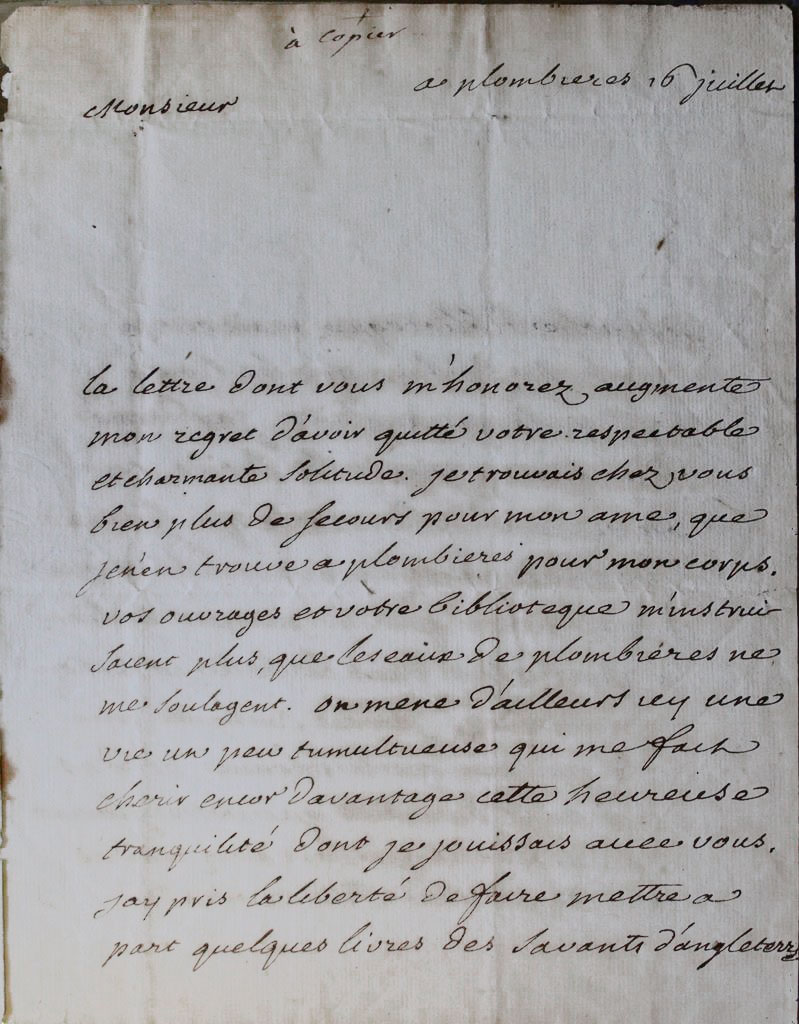 à copier
a plombieres 16 juillet
Monsieur
la lettre dont vous m'honorez augmente
mon regret d'avoir quitté votre respectable
et charmante solitude. je trouvais chez vous
bien plus de secours pour mon ame, que
je n'en trouve a plombieres pour mon corps.
vos ouvrages et votre biblioteque m'instrui-
saient plus, que les eaux de plombiéres ne
me soulagent. on mene d'ailleurs icy une
vie un peu tumultueuse qui me fait
cherir encor davantage cette heureuse
tranquilité dont je jouissais avec vous.
jay pris la liberté de faire mettre a
part quelques livres des savants d'angleterre